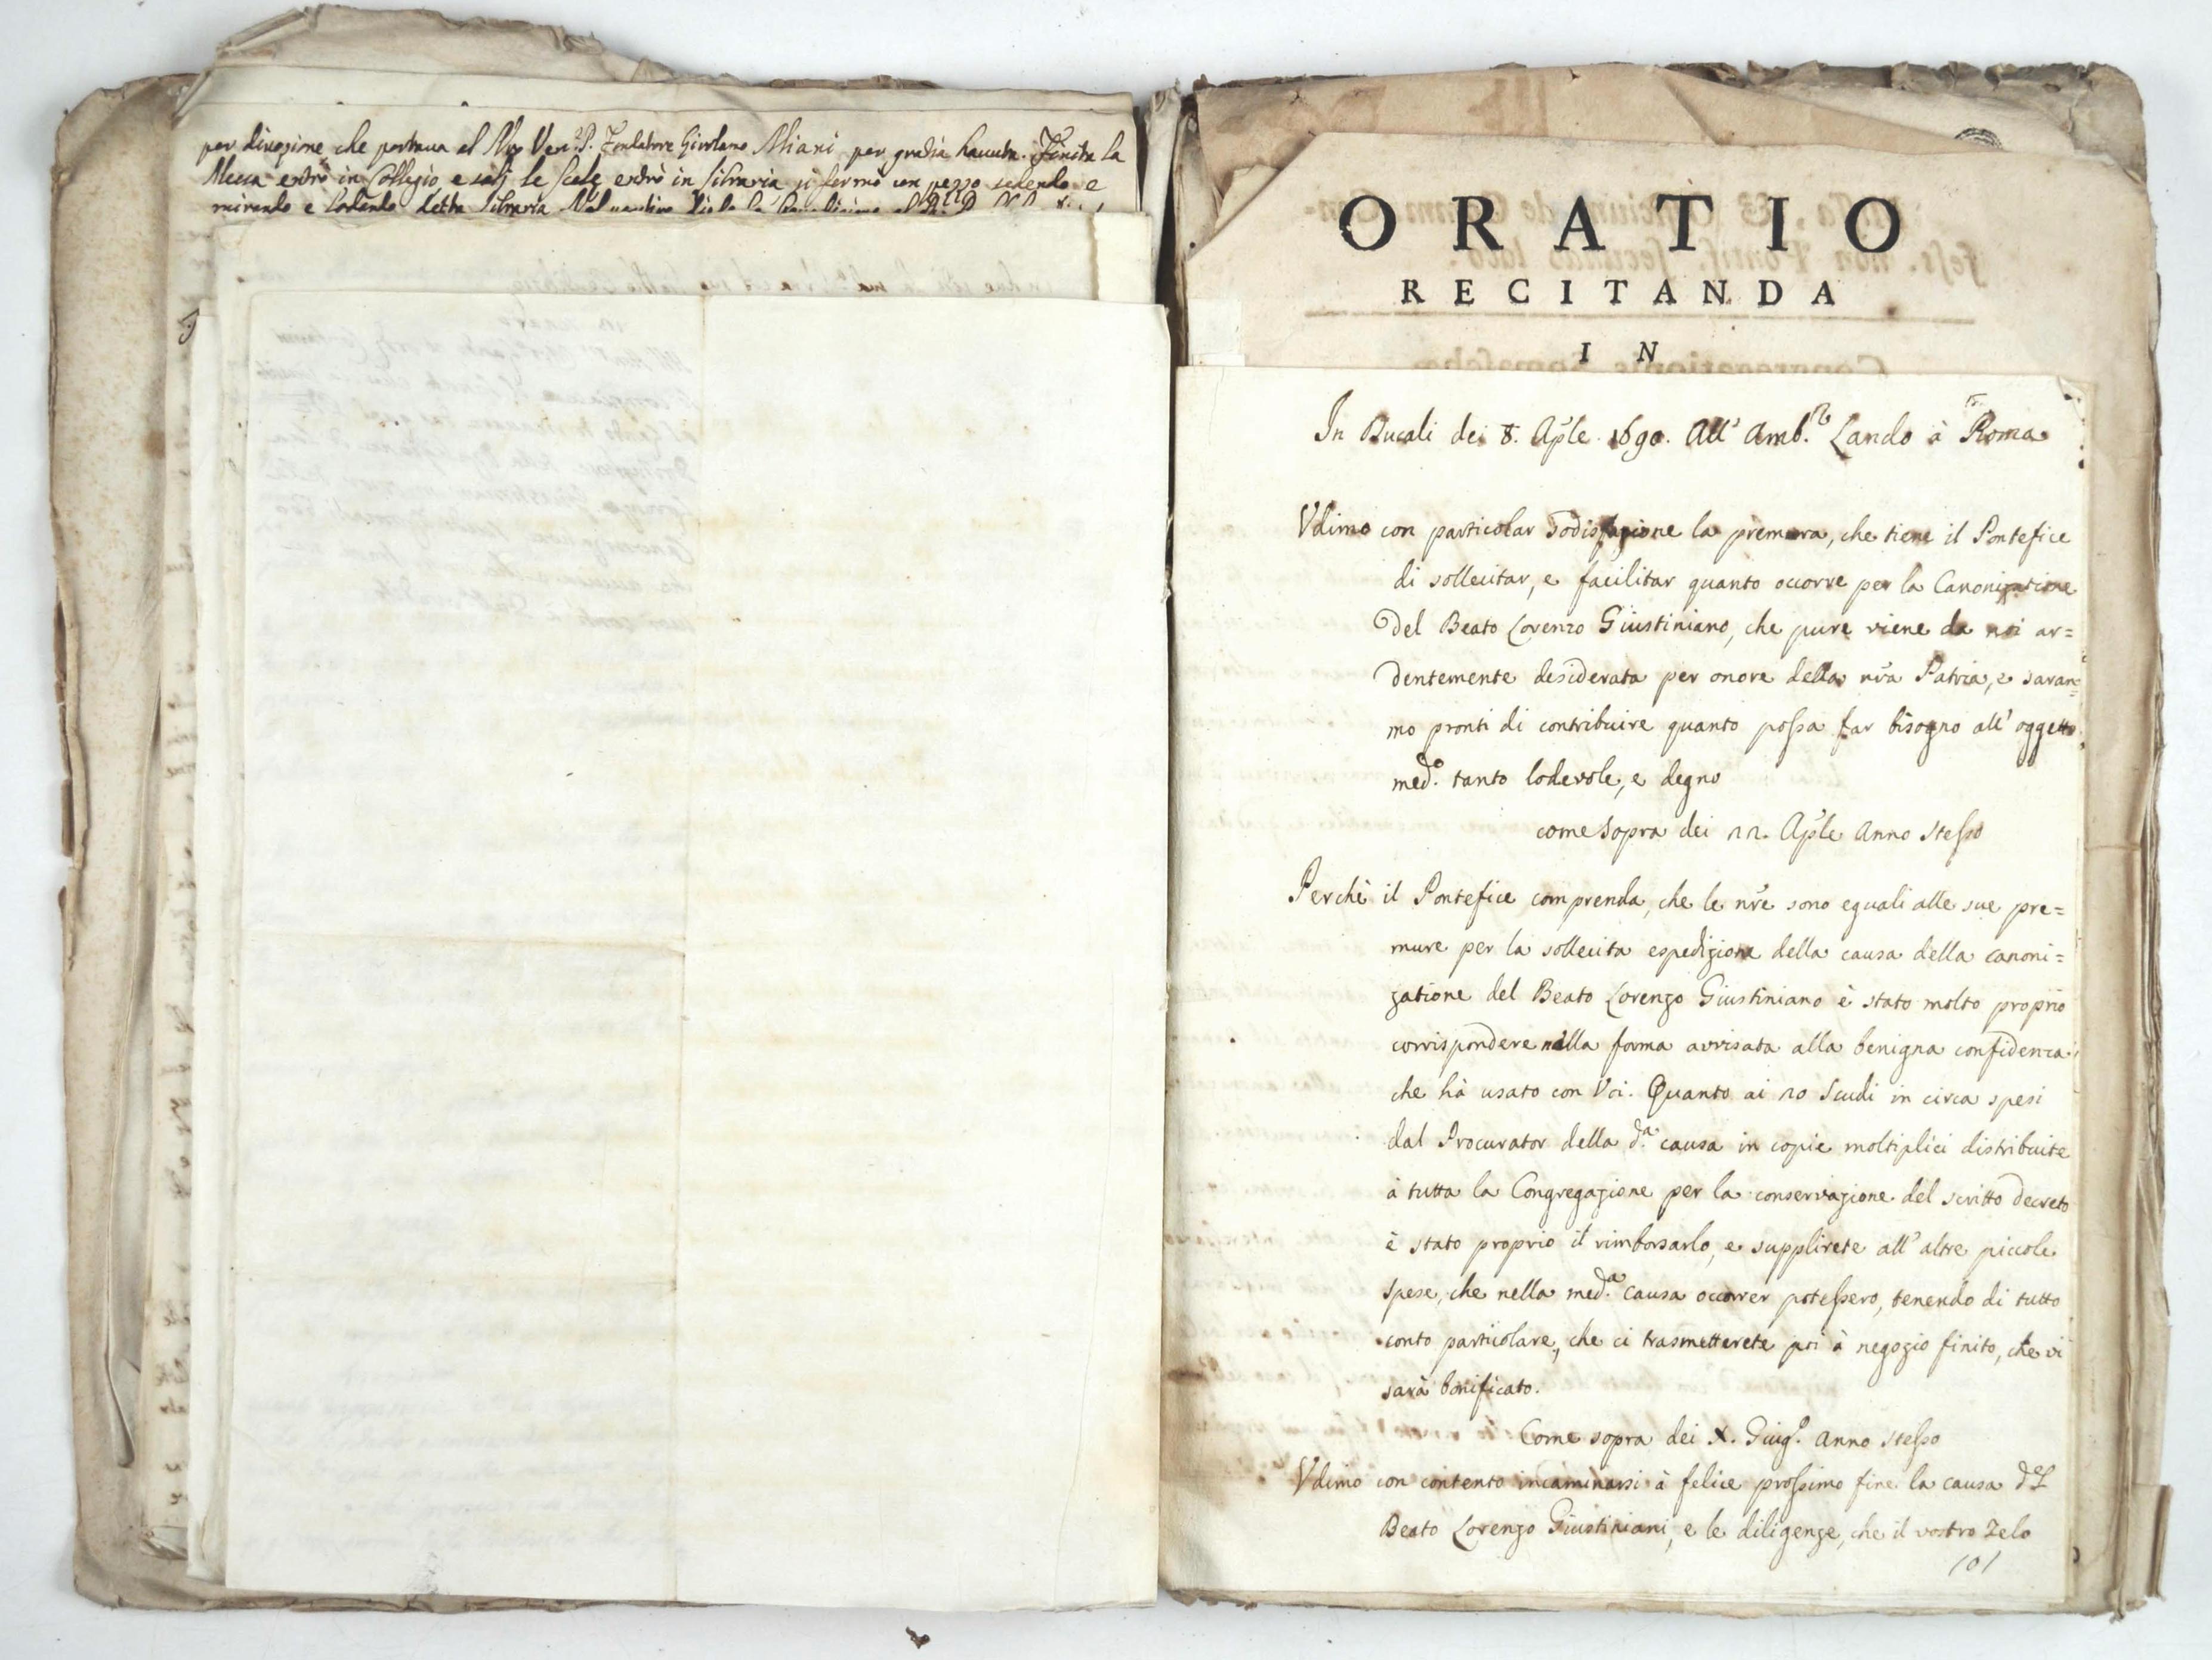 per divozione che portava al Nro Ven. P. Fondatore Girolamo Miani per gratia havuta. Finita la
Messa entrò in Collegio, e salì le Scale entrò in libraria si fermò un pezzo sedendo e
mirando e lodando detta libraria
ORATIO
RECITANDA
IN
In Ducali dei 8. Aple 1690. All' Amb.r Lando à Roma
Udimo con particolar sodisfazione la premura, che tiene il Pontefice
di sollecitar, e facilitar quanto occorre per la Canonizatione
del Beato Lorenzo Giustiniano, che pure viene da noi ar=
dentemente desiderata per onore della nra Patria, e saran=
mo pronti di contribuire quanto possa far bisogno all' oggetto
med.o tanto lodevole, e degno
come sopra dei 22. Aple Anno stesso
Perchè il Pontefice comprenda, che le nre sono eguali alle sue pre=
mure per la sollecita espedizione della causa della canoni=
zatione del Beato Lorenzo Giustiniano è stato molto proprio
corrispondere nella forma avvisata alla benigna confidenza
che hà usato con Voi. Quanto ai 20 scudi in circa spesi
dal Procurator della d.a causa in copie moltiplici distribuite
à tutta la Congregazione per la conservazione del scritto decreto
è stato proprio il rimborsarlo, e supplirete all' altre piccole
spese, che nella med.a causa occorrer potessero, tenendo di tutto
conto particolare, che ci trasmetterete poi à negozio finito, che vi
sarà bonificato.
Come sopra dei X. Giug.o anno stesso
Udimo con contento incaminarsi à felice prossimo fine la causa del
Beato Lorenzo Giustiniani, e le diligenze, che il vostro zelo
101